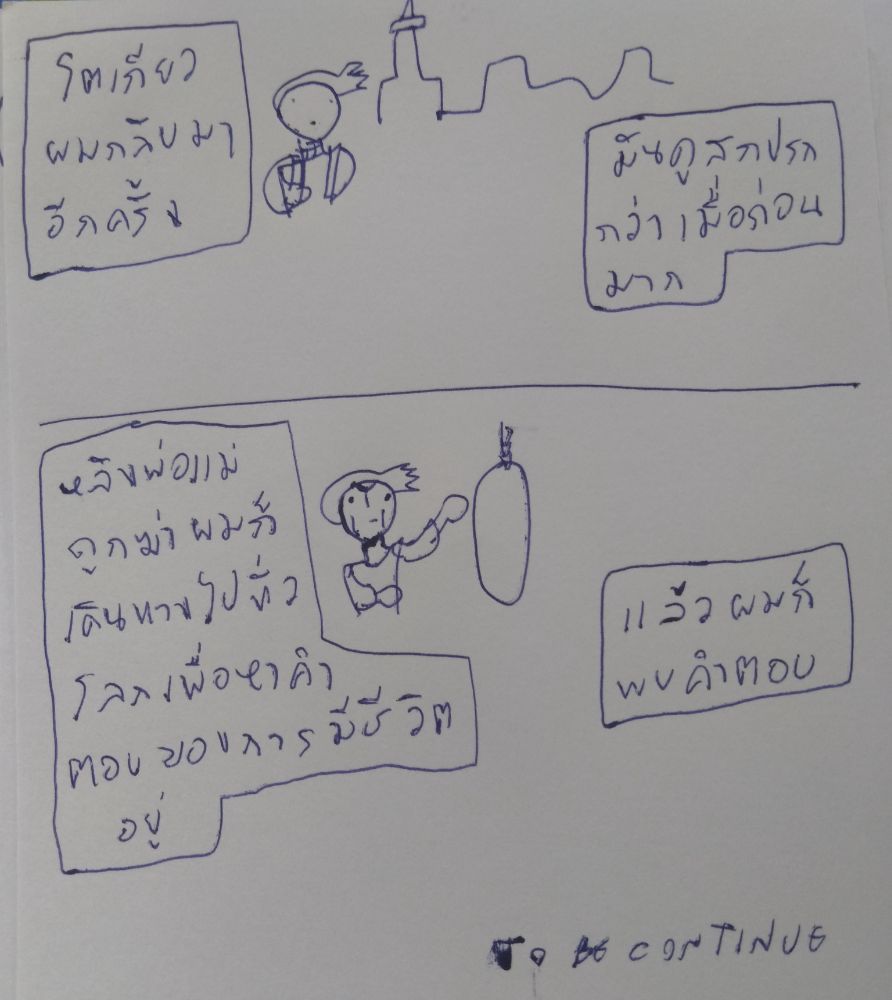 โตเกียว
ผมกลับมา
อีกครั้ง
มันดูสกปรก
กว่าเมื่อก่อน
มาก
หลังพ่อแม่
ถูกฆ่าผมก็
เดินทางไปทั่ว
โลกเพื่อหาคำ
ตอบของการมีชีวิต
อยู่
แล้วผมก็
พบคำตอบ
TO BE CONTINUE